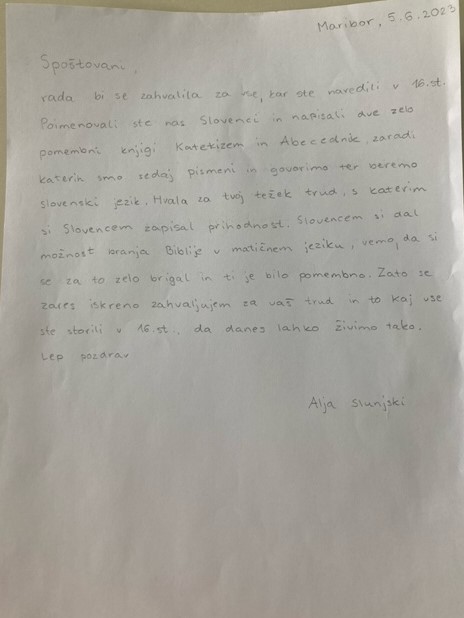 Maribor, 5.6.2023
Spoštovani,
rada bi se zahvalila za vse, kar ste naredili v 16.st.
Poimenovali ste nas Slovenci in napisali dve zelo
pomembni knjigi Katekizem in Abecednik, zaradi
katerih smo zedaj pismeni in govorimo ter beremo
slovenski jezik. Hvala za tvoj težek trud, s katerim
si Slovencem zapisal prihodnost. Slovencem si dal
možnost branja Biblije v matičnem jeziku, vemo, da si
se za to zelo brigal in ti je bilo pomembno. Zato se
zares iskreno zahvaljujem za vaš trud in to kaj vse
ste storili v 16.st., da danes lahko živimo tako.
Lep pozdrav
Alja Slunjski